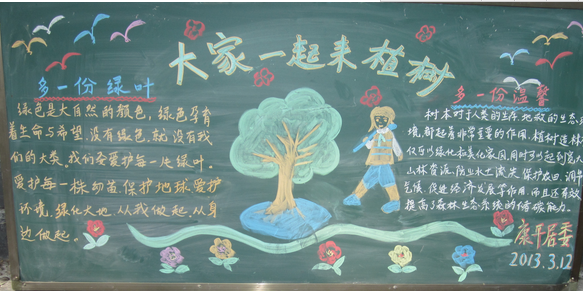 大家一起来植树
多一份绿叶
绿色是大自然的颜色，绿色孕育
着生命与希望，没有绿色，就没有我
们的人类。我们要爱护每一片绿叶。
爱护每一株幼苗，保护地球，爱护
环境，绿化大地，从我做起，从身
边做起。
多一份温馨
树木对于人类的生存，地球的生态环
境，都起着非常重要的作用。植树造林
不仅可以绿化和美化家园，同时可以起到扩大
山林资源、防止水土流失、保护农田、调节
气候、促进经济发展等作用，而且还有效
提高了森林生态系统的储碳能力。
康平居委
2013.3.12